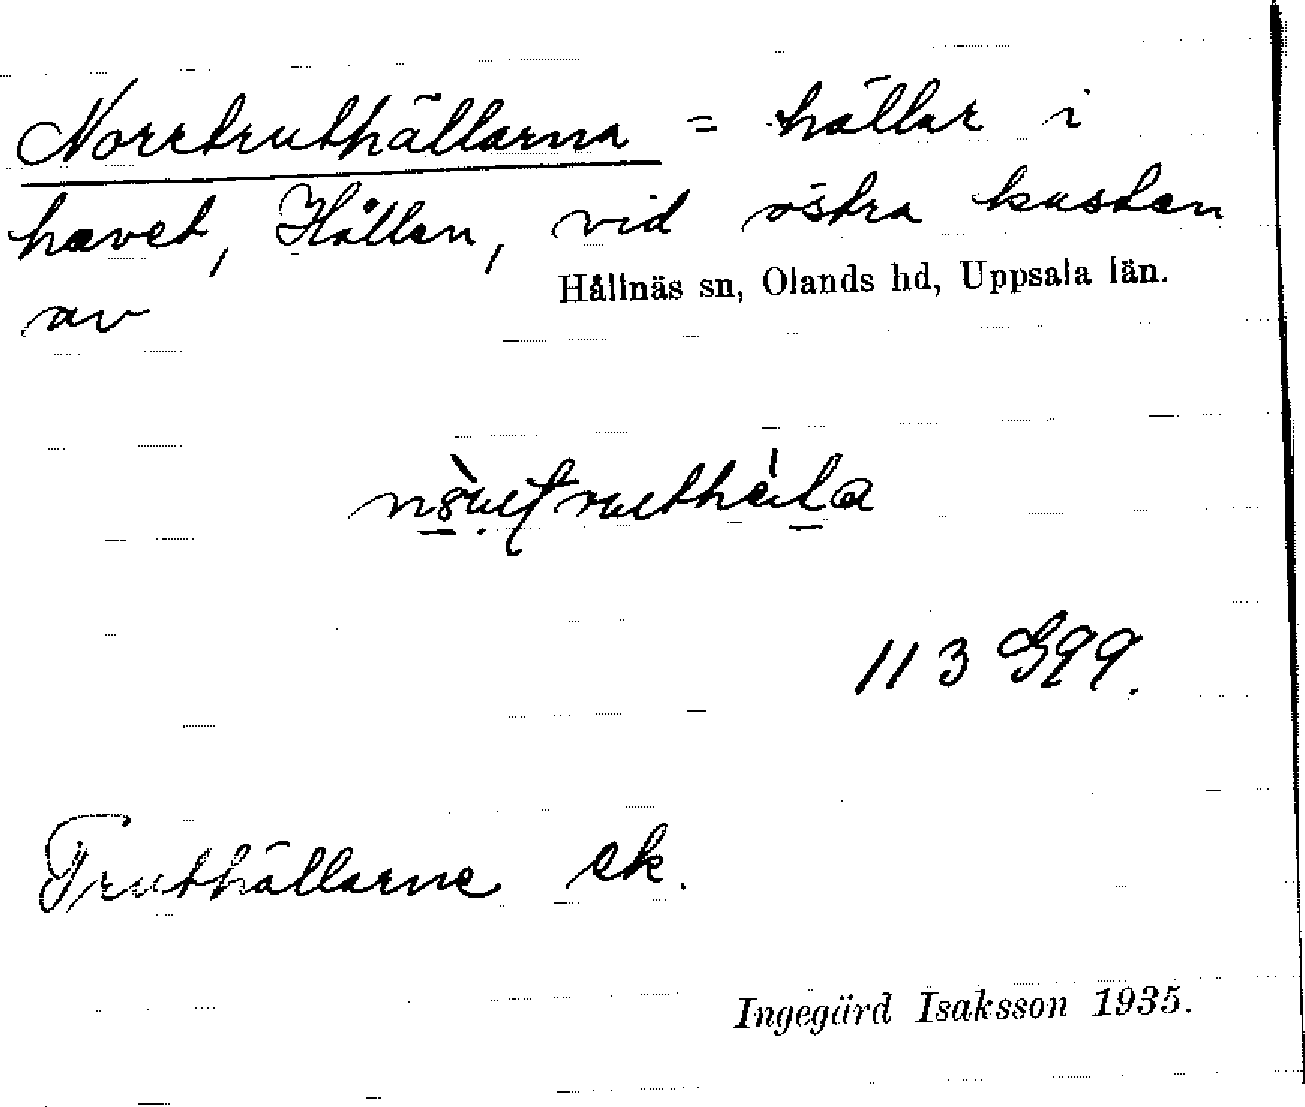 Norrtruthällarna = hällar i
havet, Hållen, vid östra kusten
av Hållnäs sn, Olands hd, Uppsala län.
113 Sqq.
Truthällarne ek.
Ingegärd Isaksson 1935.